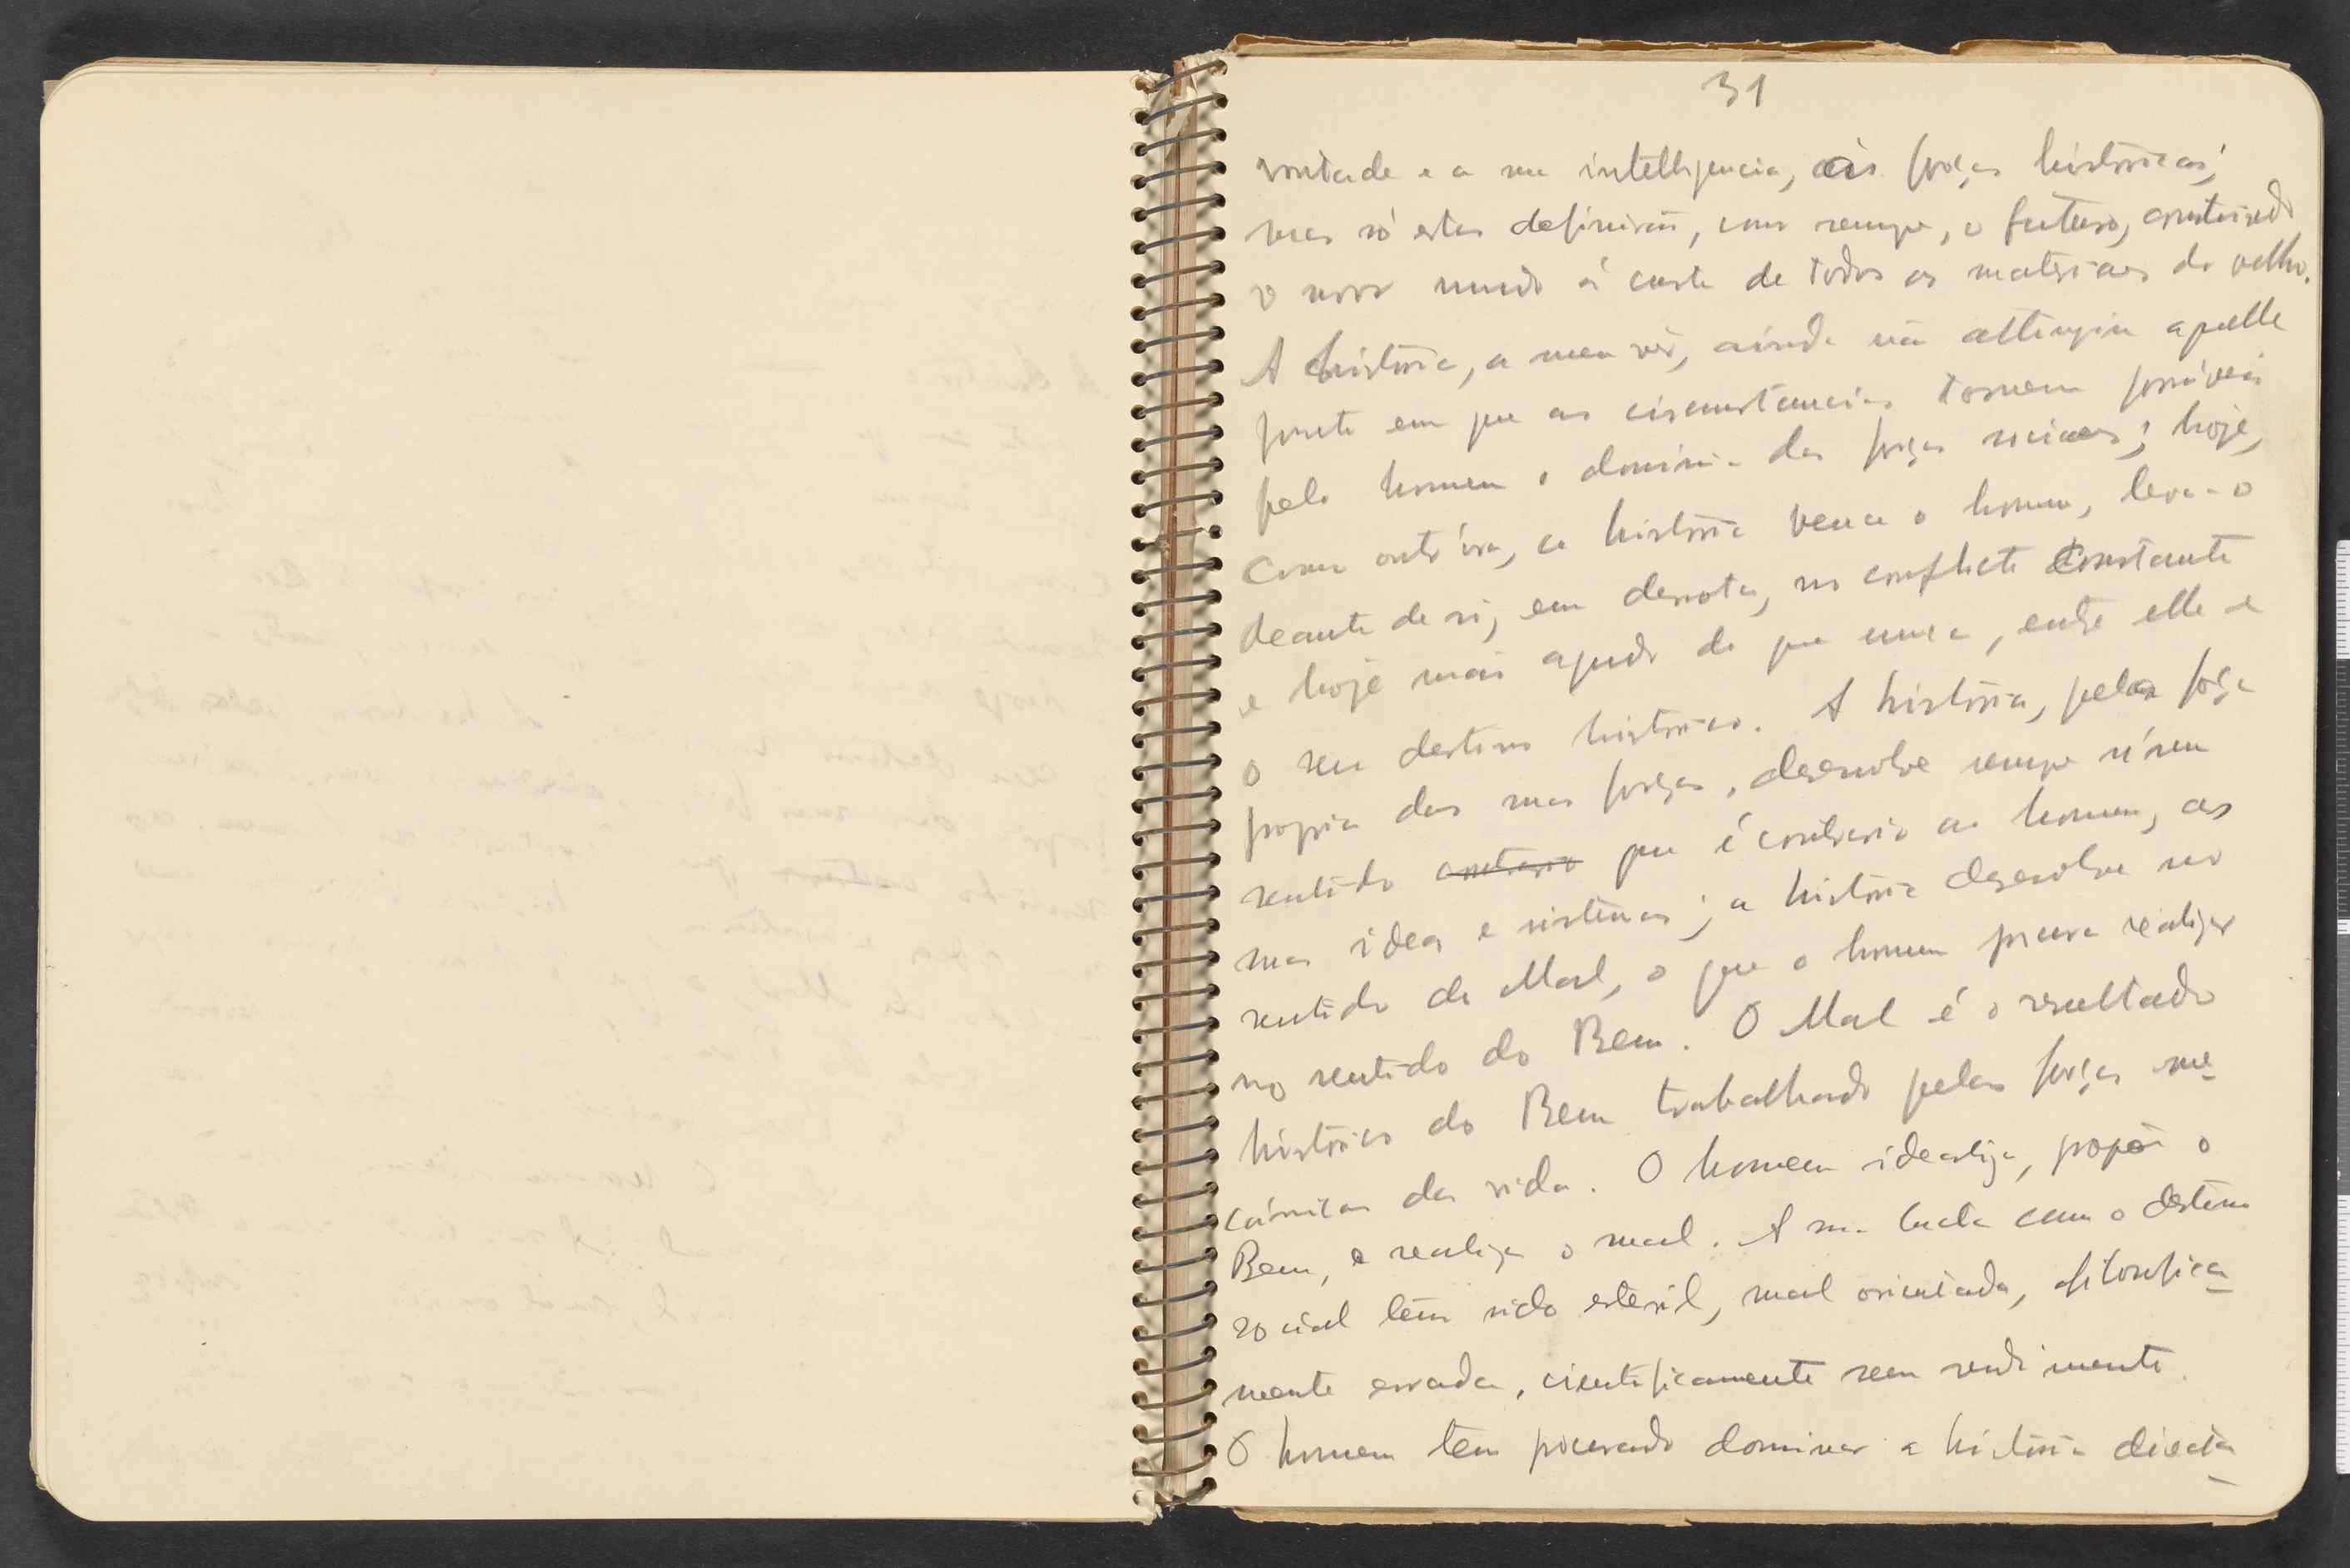 31
vontade e a sua intelligencia, ás forças históricas;
mas só estas definirão, como sempre, o futuro, construindo
o novo mundo á custa de todos os materiaes do velho.
A história, a meu vêr, ainda não attingiu aquelle
ponto em que as circunstancias tornem possíveis
pelo homem o dominio das forças sociaes; hoje,
como outr'ora, a história vence o homem, leva-o
deante de si, em derrota, no conflicto constante
e hoje mais agudo do que nunca, entre elle e
o seu destino histórico. A história, pela força
propria das suas forças, desenvolve sempre n'um
sentido contrario que é contrario ao homem, as
suas ideas e sistemas; a história desenvolve no
sentido do Mal, o que o homem procura realizar
no sentido do Bem. O Mal é o resultado
histórico do Bem trabalhado pelas forças me-
cánicas da vida. O homem idealiza, propõi o
Bem, e realiza o mal. A sua lucta com o destino
social tem sido esteril, mal orientada, filosofica-
mente errada, cientificamente sem rendimento.
O homem tem procurado dominar a história directa-